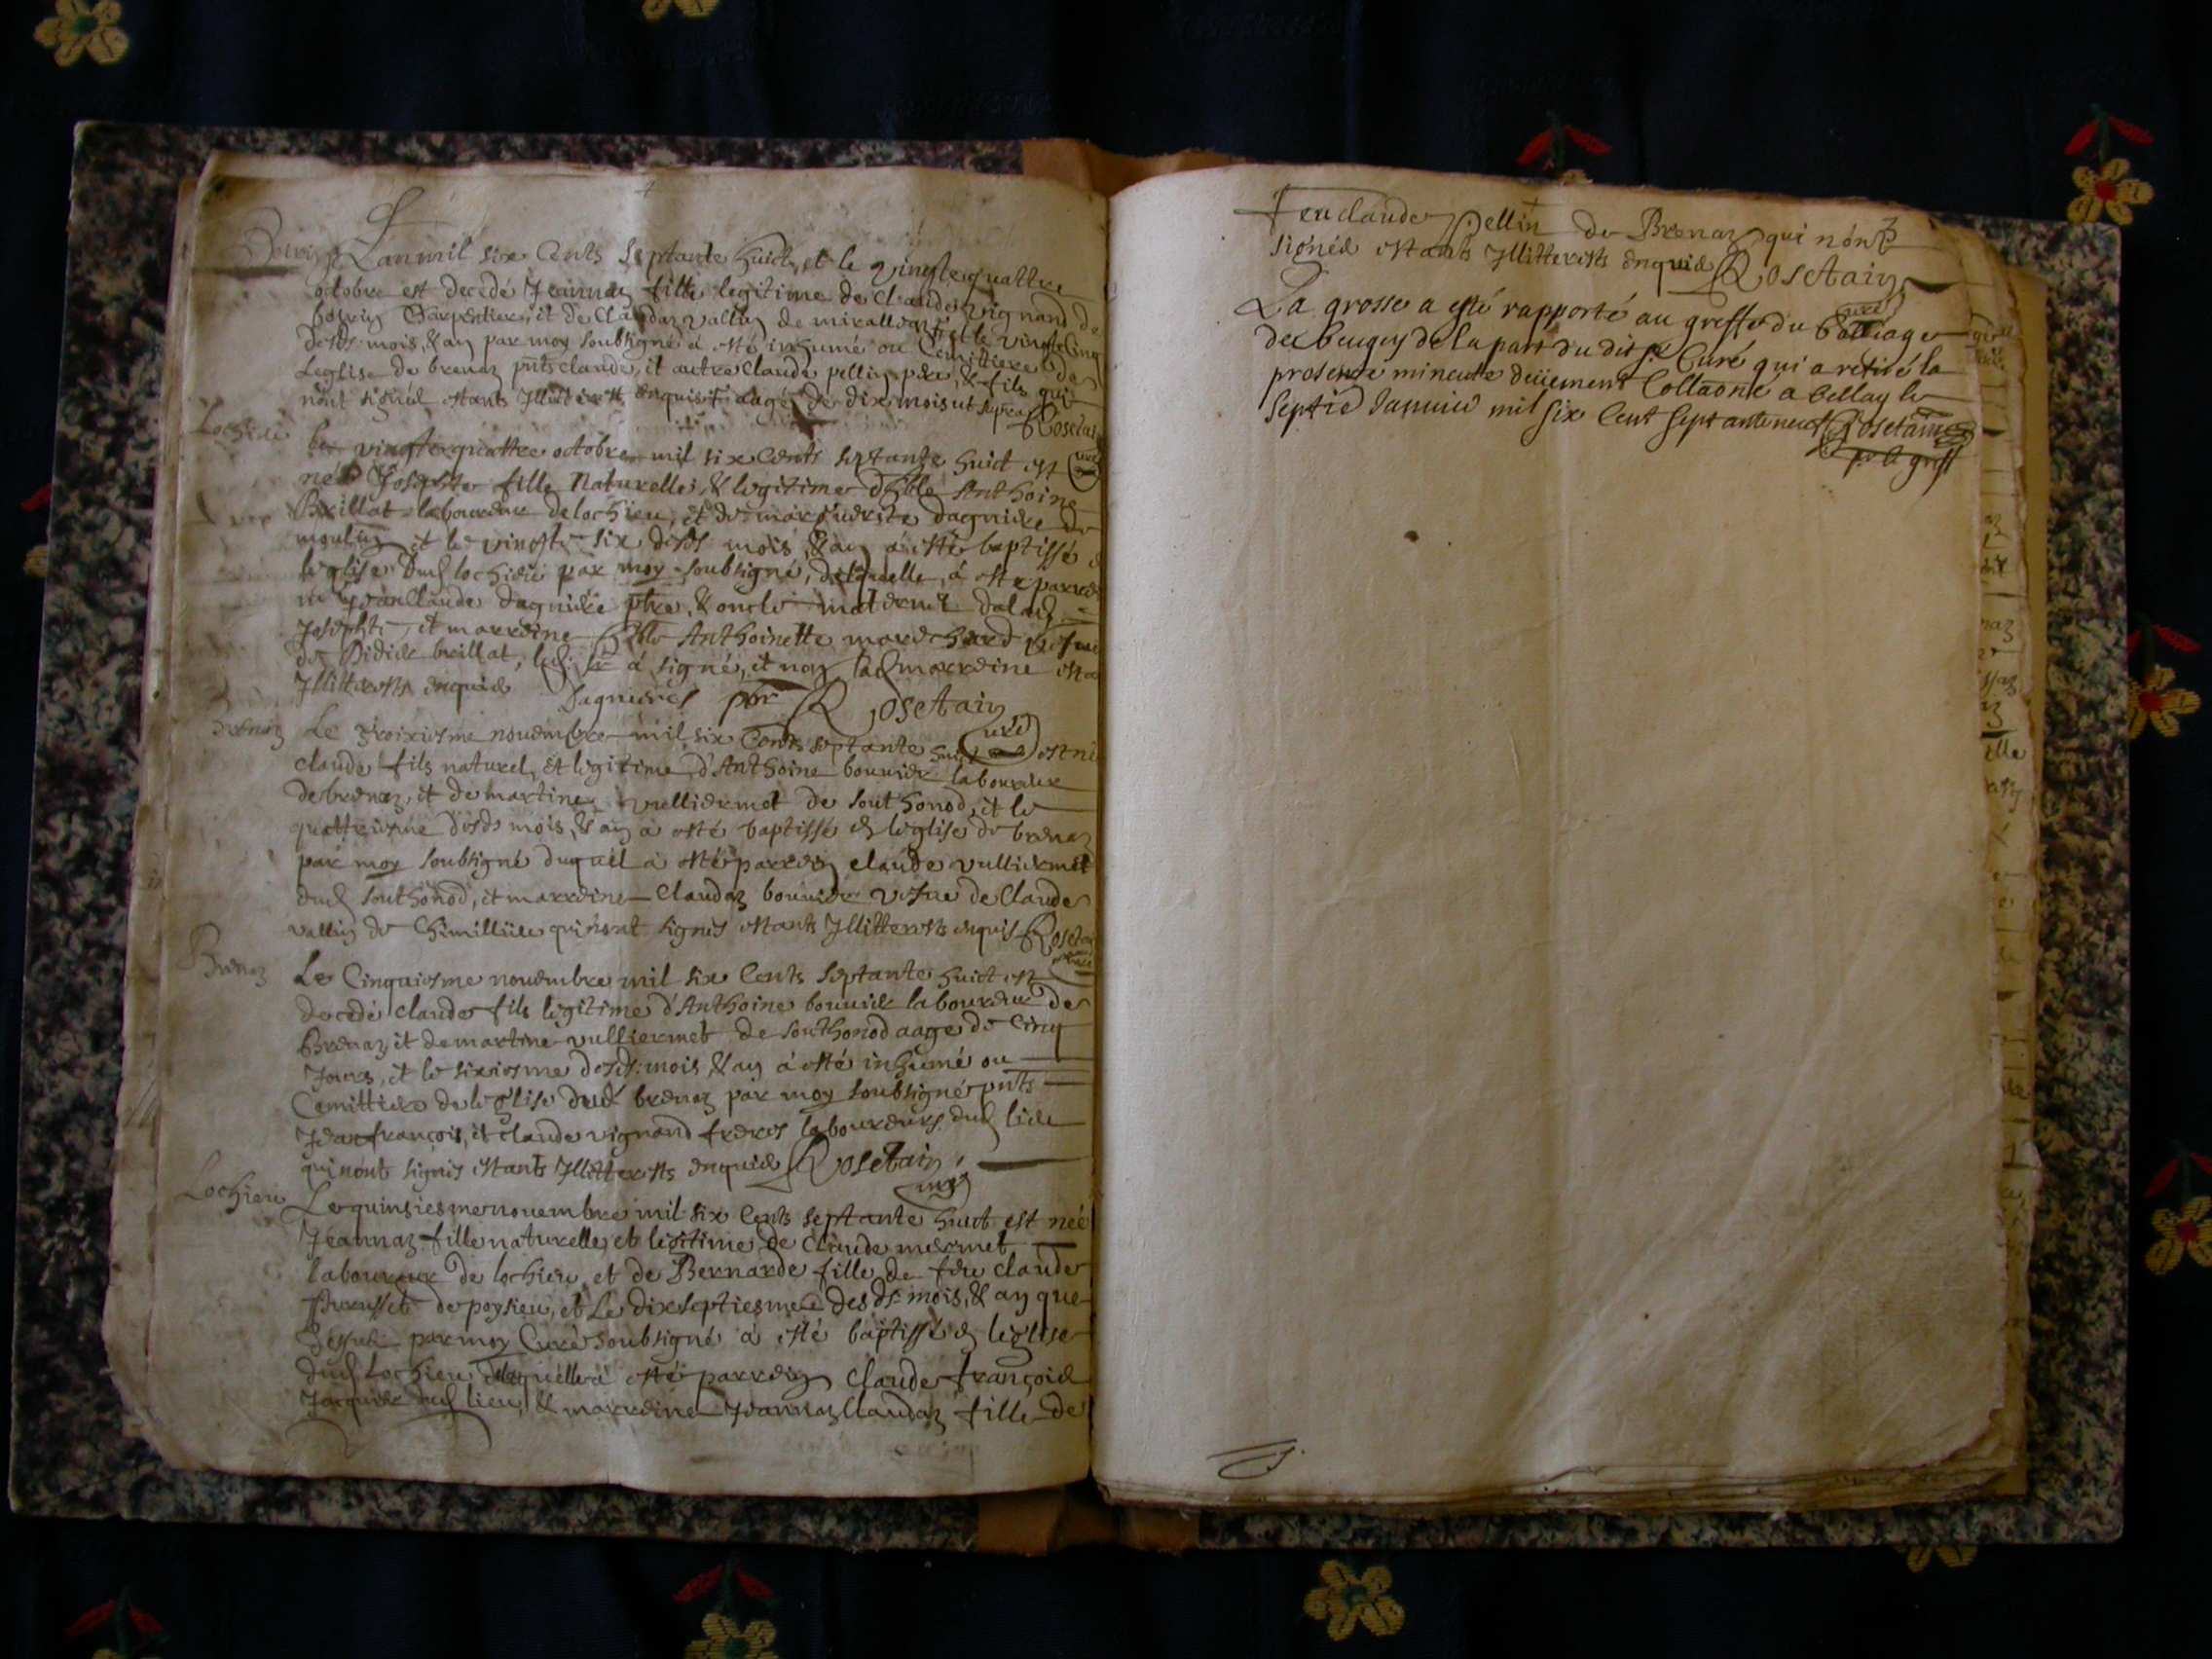 Lan mil six Cents septante huict, et le vingte quattre
octobre est decedé Jeannaz fille legitime de Claude vignand de
Charpentier, et de Claudaz vallin de
desds mois, & an par moy soubsigné a esté inhumé au Cemittiere de
Leglise de brenaz pnts claude, et autre claude pellin pere, & fils qui
nont signéz estants Illitterests enquis aagé de dix mois ut supra Rosetain
Lochieu
le vingte quattre octobre mil six Cents septante huict est
née Josephte fille Naturelle, & legitime Anthoine
Brillat laboureur de lochieu, et de marguerite dagniere de
moulin et le vingte six desds mois, & an a esté baptissé
leglise dud lochieu par moy soubsigné, delaquelle, a esté parrei
n Jean Claude dagniere ptre, & oncle maternel
Josephte, et marreine Anthoinette marechard
de Didier brillat, a signé, et non lad marreine esta
Illitterests enquis Dagnieres pbr Rosetain
curé
Brenaz
Le troixiesme nouembre mil six Cents septante huict est né
claude fils naturel, et legitime d'Anthoine bouuier laboureur
de brenaz, et de martine vulliermet de Southonod, et le
quattriesme desds mois, & an a esté baptissé leglise de brenaz
par moy soubsigné duquel a esté parrein claude vulliermet
dud Southonod, et marreine Claudaz bouuier vefue de Claude
vallin de Chimilliie qui nont signés estants Illitterests enquis Rosetain
Brenaz
Le Cinquiesme nouembre mil six Cents septante huict est
decedé claude fils legitime d'Anthoine bouuier laboureur de
Brenaz, et de martine vulliermet de Southonod aage de Cinq
Jours, et le sixiesme desds mois, & an a esté inhumé au
Cemittiere de leglise dud brenaz par moy soubsigné pnts
Jean francois, et claude vignand freres laboureurs dud lieu
qui nont signés estants Illitterests enquis Rosetain
Lochieu
Le quinsiesme nouembre mil six Cents septante huict est née
Jeannaz fille naturelle, et legitime de Claude mermet
laboureur de lochieu, et de Bernarde fille de feu claude
de poysieu, et Le dixseptiesme des ds mois, & an que
dessus par moy Curé soubsigné a esté baptissé leglise
dud Lochieu delaquelle a esté parrein claude francois
Jacquier dud lieu, & marreine Jeannaz Claudaz fille de
feu claude Pellin de Brenaz qui nont
signés estants Illitterests enquis Rosetain
curé
La grosse a esté rapporté au greffe du Balliage
de beugey de la part du dit Sr Curé qui a retiré la
presente mineute deüement Collaonné a Bellay le
septie Januier mil six Cent septante neuf Rosetain